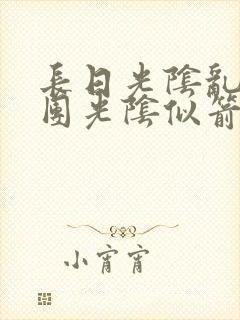 長日光陰亂
團光陰似箭
小宵宵